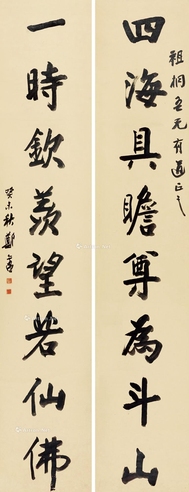 祖桐吾兄有道正之
四海具瞻尊為斗山
一時欽羨望若仙佛
癸未秋